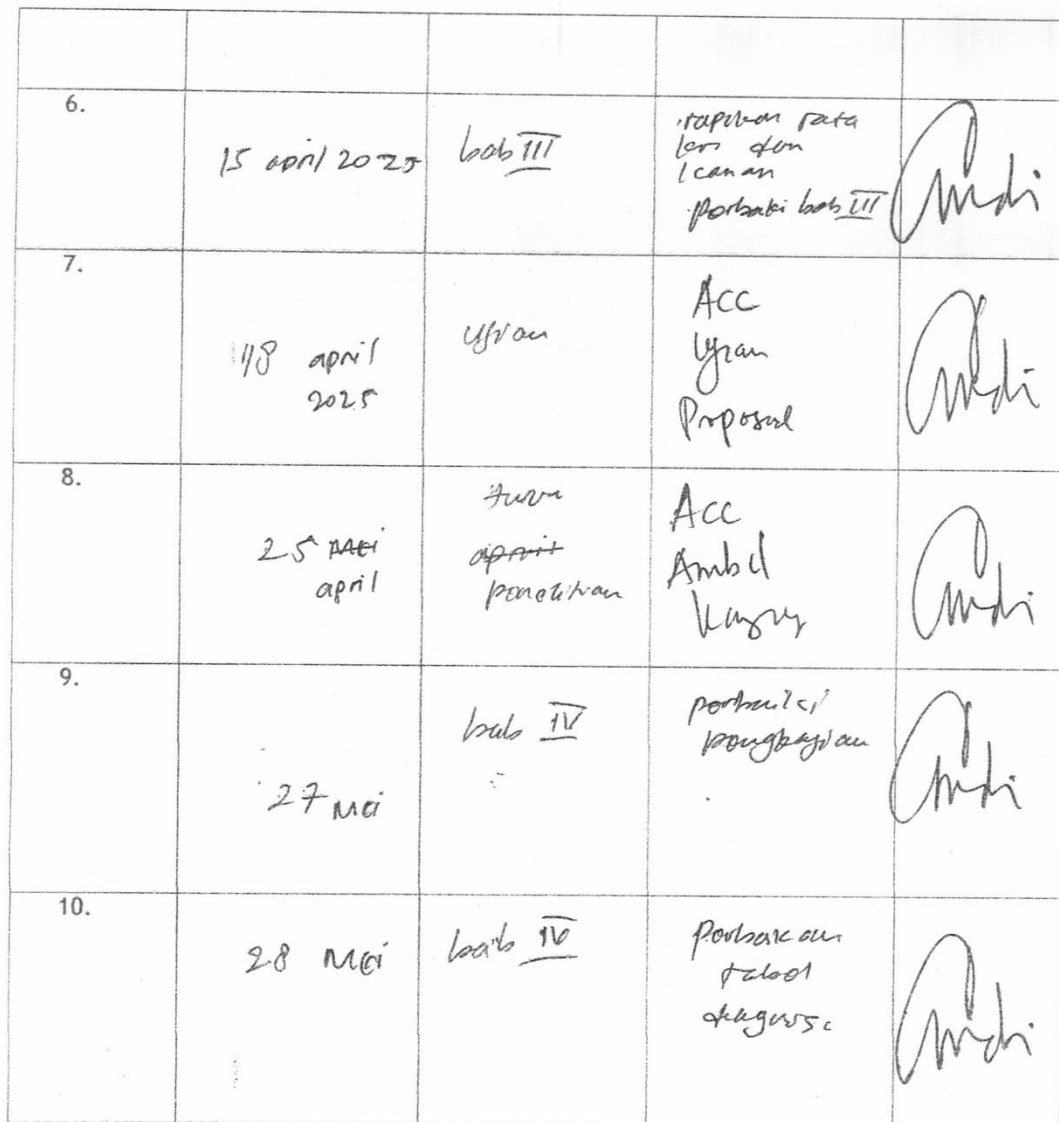 6.
15 april 2025
bab III
rapikan rata
kiri dan
kanan
perbaiki bab III
7.
18 april
2025
ujian
ACC
Ujian
Proposal
8.
25 Mei
april
turun
april
penelitian
Acc
Ambil
9.
27 Mei
bab IV
perbaiki
pengkajian
10.
28 Mei
bab IV
perbaikan
tabel